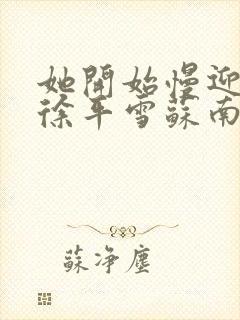 她開始慢迎
徐平雪蘇南
蘇净塵